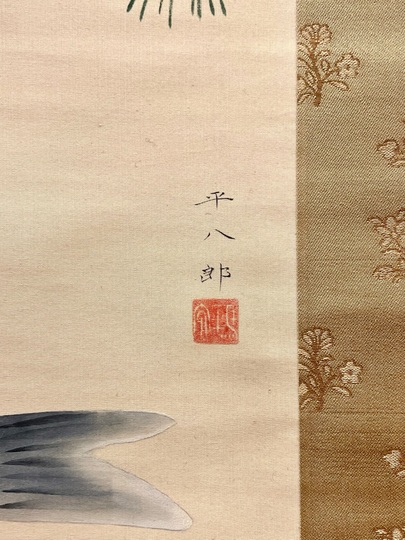 平八郎